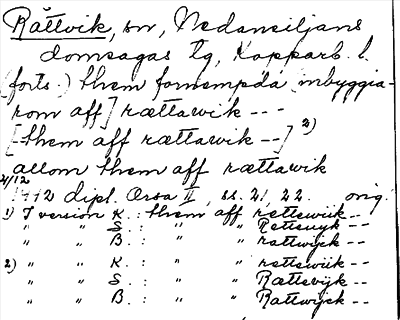 Rättvik, sn, Nedansiljans
domsagas tg, Kopparb. l.
(forts.) them fornempda inbyggia-
rom aff] rættawik - - -
[them aff rættawik - -] 2)
allom them aff rættawik
4/12
1442 dipl. Orsa II, ss. 21, 22. orig.
1) I version K. : them aff rettewiik - -
" " S. : " " Retteuyk - -
" " B. : " " rattwijck - -
2) " " K. : " " rettewiik - -
" " S. : " " Rættevijk - -
" " B. : " " Rattwijck - -